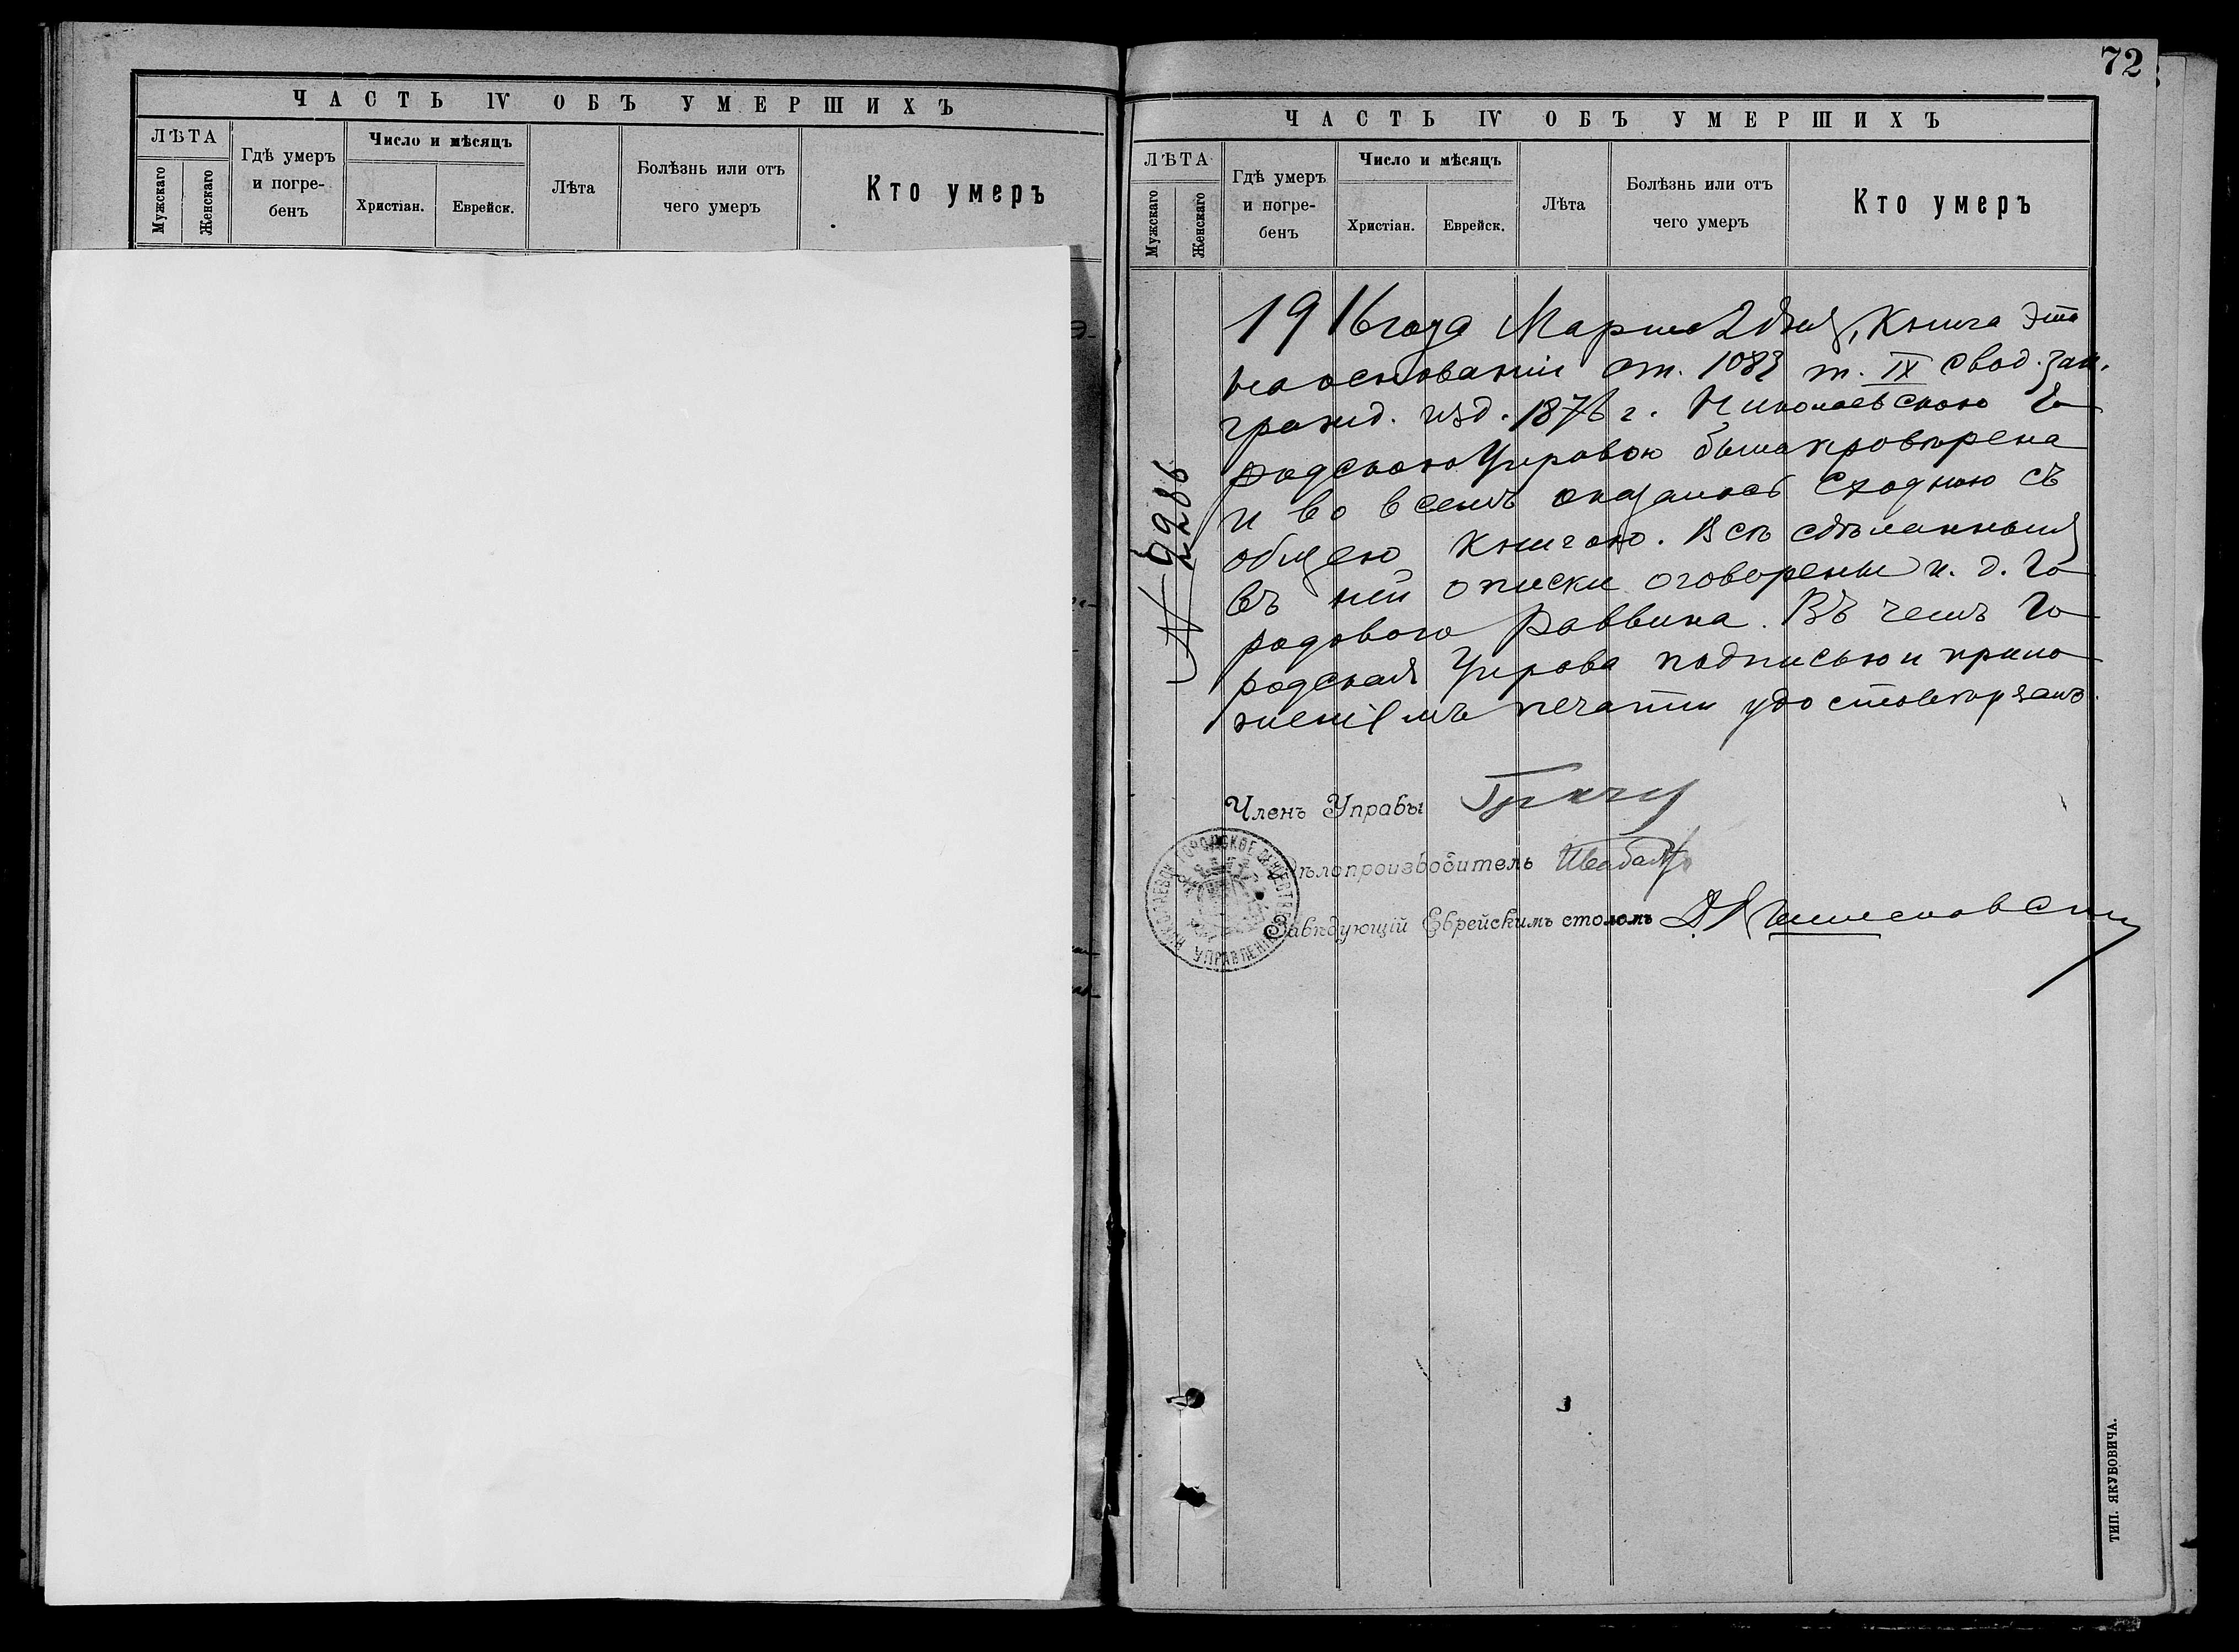 ЧАСТЬ IV ОБЪ УМЕРШИХЪ
ЛѢТА
Мужскаго
Женскаго
Гдѣ умеръ
и погре-
бенъ
Число и мѣсяцъ
Христіан.
Еврейск.
Лѣта
Болѣзнь или отъ
чего умеръ
Кто умеръ
72
ЧАСТЬ IV ОБЪ УМЕРШИХЪ
ЛѢТА
Мужскаго
Женскаго
Гдѣ умеръ
и погре-
бенъ
Число и мѣсяцъ
Христіан.
Еврейск.
Лѣта
Болѣзнь или отъ
чего умеръ
Кто умеръ
1916 года Марта 2 дня, Книга эта
на основаніи ст. 1083 т. IX свод. зак.
гражд. изд. 1876 г. Николаевскою Го
родскою Управою была провѣрена
и во всемъ оказалась сходною съ
общею книгою. Всѣ сдѣланныя
въ ней описки оговорены и. д. Го
родового Раввина. Въ чемъ Го
родская Управа подписью и прило
женіемъ печати удостовѣряетъ.
№ 2286
Членъ Управы
Дѣлопроизводитель
Завѣдующій Еврейскимъ столомъ
НИКОЛАЕВСК. ГОРОДСКОЕ ОБЩЕСТВ. УПРАВЛЕНІЕ
ТИП. ЯКУБОВИЧА.